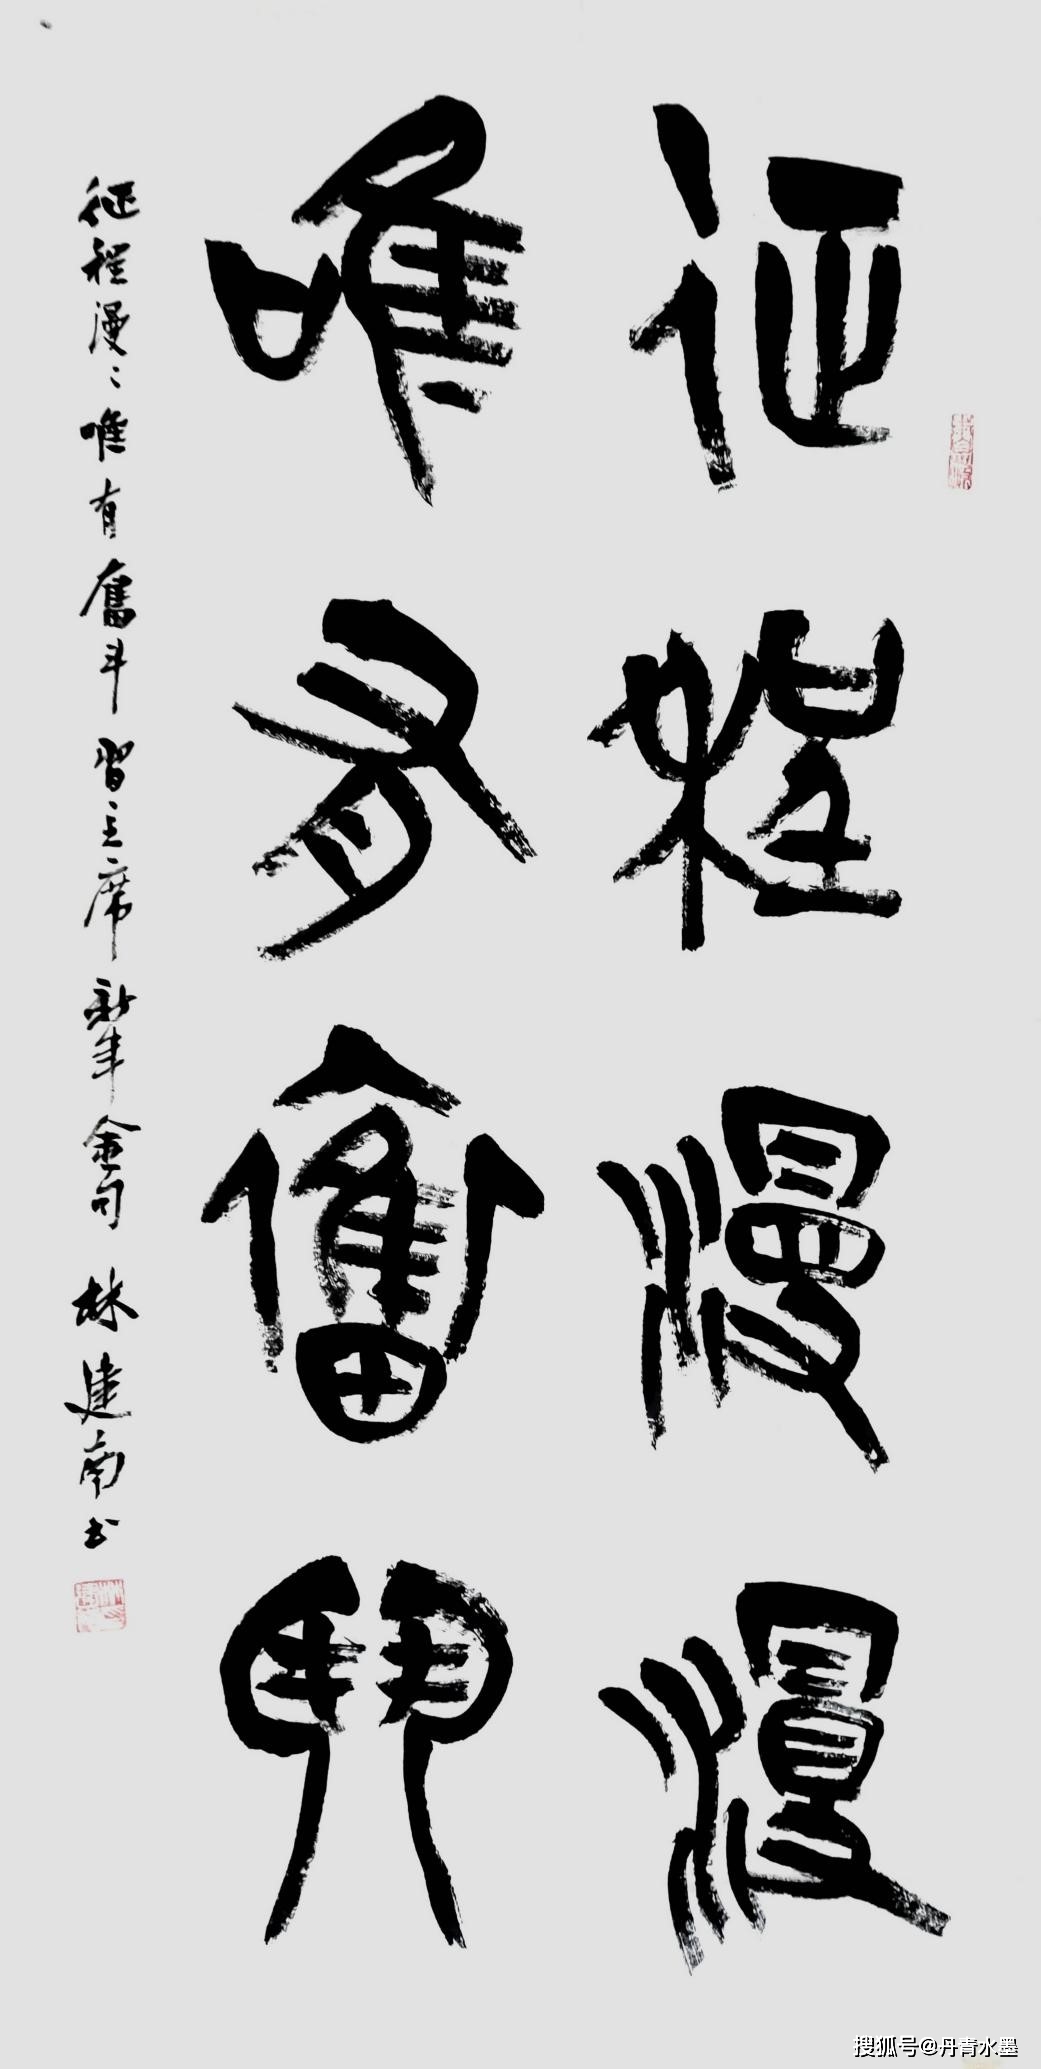 征程漫漫
唯有奮鬥
征程漫〻唯有奮斗 習主席新年金句 林建南书
搜狐号@丹青水墨